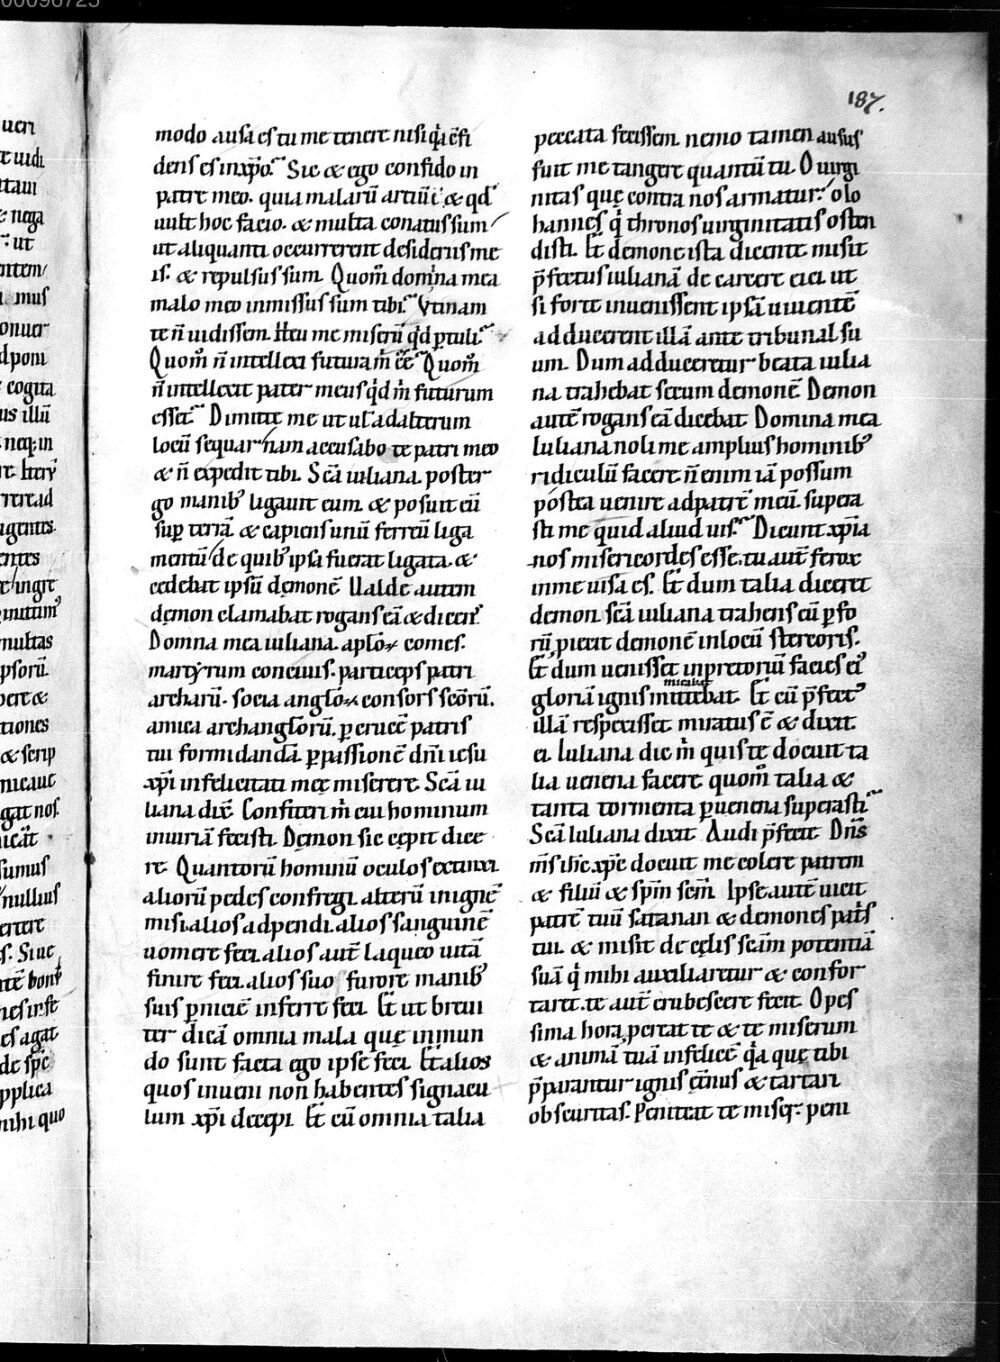 187.
modo ausa es tu me tenere nisi q̇a c̄fi
dens es in xp̄o. Sic & ego confido in
patre meo. quia malarū artiū ē & qd̛
uult hoc facio. & multa conatus sum
ut aliquanti occurrerent desideriis me
is. & repulsus sum. Quom̄ domina mea
malo meo inmissus sum tibi. Vtinam
te n̄ uidissem. Heu me miserū q̇d p̲tuli.
Quom̄ n̄ intellexi futurā m̄ ēē Quom̄
n̄ intellexit pater meus q̇d m̄ futurum
esset. Dimitte me ut uł ad alterum
locū sequar nam accusabo te patri meo
& n̄ expedit tibi. Sc̄a iuliana. poster
go manib; ligauit eum. & posuit eū
sup̲ terrā. & capiens unū ferreū liga
mentū de quib; ipsa fuerat ligata. &
cedebat ipsū demonē Ualde autem
demon clamabat rogans eā & dicens
Domna mea iuliana. apl̄oꝝ comes.
martyrum conciuis. particeps patri
archarū. socia angl̄oꝝ consors sc̄orū.
amica archanglorū. p̲ crucē patris
tui formidandā. p̲ passionē dn̄i iesu
xp̄i infelicitati meę miserere. Sc̄a iu
liana dix̄ Confiteri m̄ cui hominum
iniuriā fecisti. Demon sic cepit dice
re. Quantorū hominū oculos extinxi
aliorū pedes confregi. alterū in ignē
misi. alios adpendi. alios sanguinē
uomere feci. alios autē laqueo uitā
finire feci. alios suo furore manib;
suis p̲niciē inferre feci. Et ut breui
ter dicā omnia mala quę in mun
do sunt facta ego ipse feci. Et alios
quos inueni non habentes signacu
lum xp̄i decepi. Et cū omnia talia
peccata fecissem. nemo tamen ausus
fuit me tangere quantū tu. O uirgi
nitas quę contra nos armatur. o Io
hannes q̇ thronos uirginitatis osten
disti. Et demone ista dicente misit
p̄fectus iulianā de carcere eici ut
si forte inuenissent ipsā uiuentē
adducerent illā ante tribunal su
um. Dum adduceretur beata iulia
na trahebat secum demonē Demon
autē rogans eā dicebat. Domina mea
Iuliana noli me amplius hominib;
ridiculū facere. n̄ enim iā possum
postea uenire ad patrē meū. supera
sti me quid aliud uis. Dicunt xp̄ia
nos misericordes esse. tu autē ferox
in me uisa es. Et dum talia diceret
demon. sc̄a iuliana trahens eū p̲ fo
rū. piecit demonē in locū stercoris.
Et dum uenisset in pretoriū facies ei;
micabat
gloriā ignis mittebat. Et cū p̄fect;
illā respexisset. miratus ē & dixit
ei Iuliana dic m̄ quis te docuit ta
lia uenena facere quom̄ talia &
tanta tormenta p̲ uenena superasti
Sc̄a Iuliana dixit. Audi p̄fecte. Dn̄s
m̄s ih̄c xp̄c docuit me colere patrem
& filiū & sp̄m sc̄m. Ipse autē uicit
patrē tuū satanan & demones pat̄s
tui. & misit de cęlis sc̄am potentiā
suā q̇ mihi auxiliaretur & confor
taret. te aut̄ erubescere fecit. O pes
sima hora, pereat te & te miserum
& animā tuā infelicē q̇a quę tibi
p̄parantur ignis et̄nus & tartari
obscuritas. Penitent te miser. peni